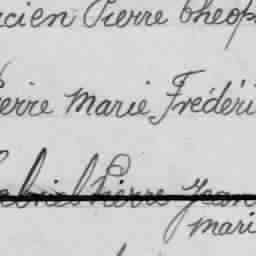 cien Pierre theop
ierre Marie Frédéri
abriel Pierre Jean
mari